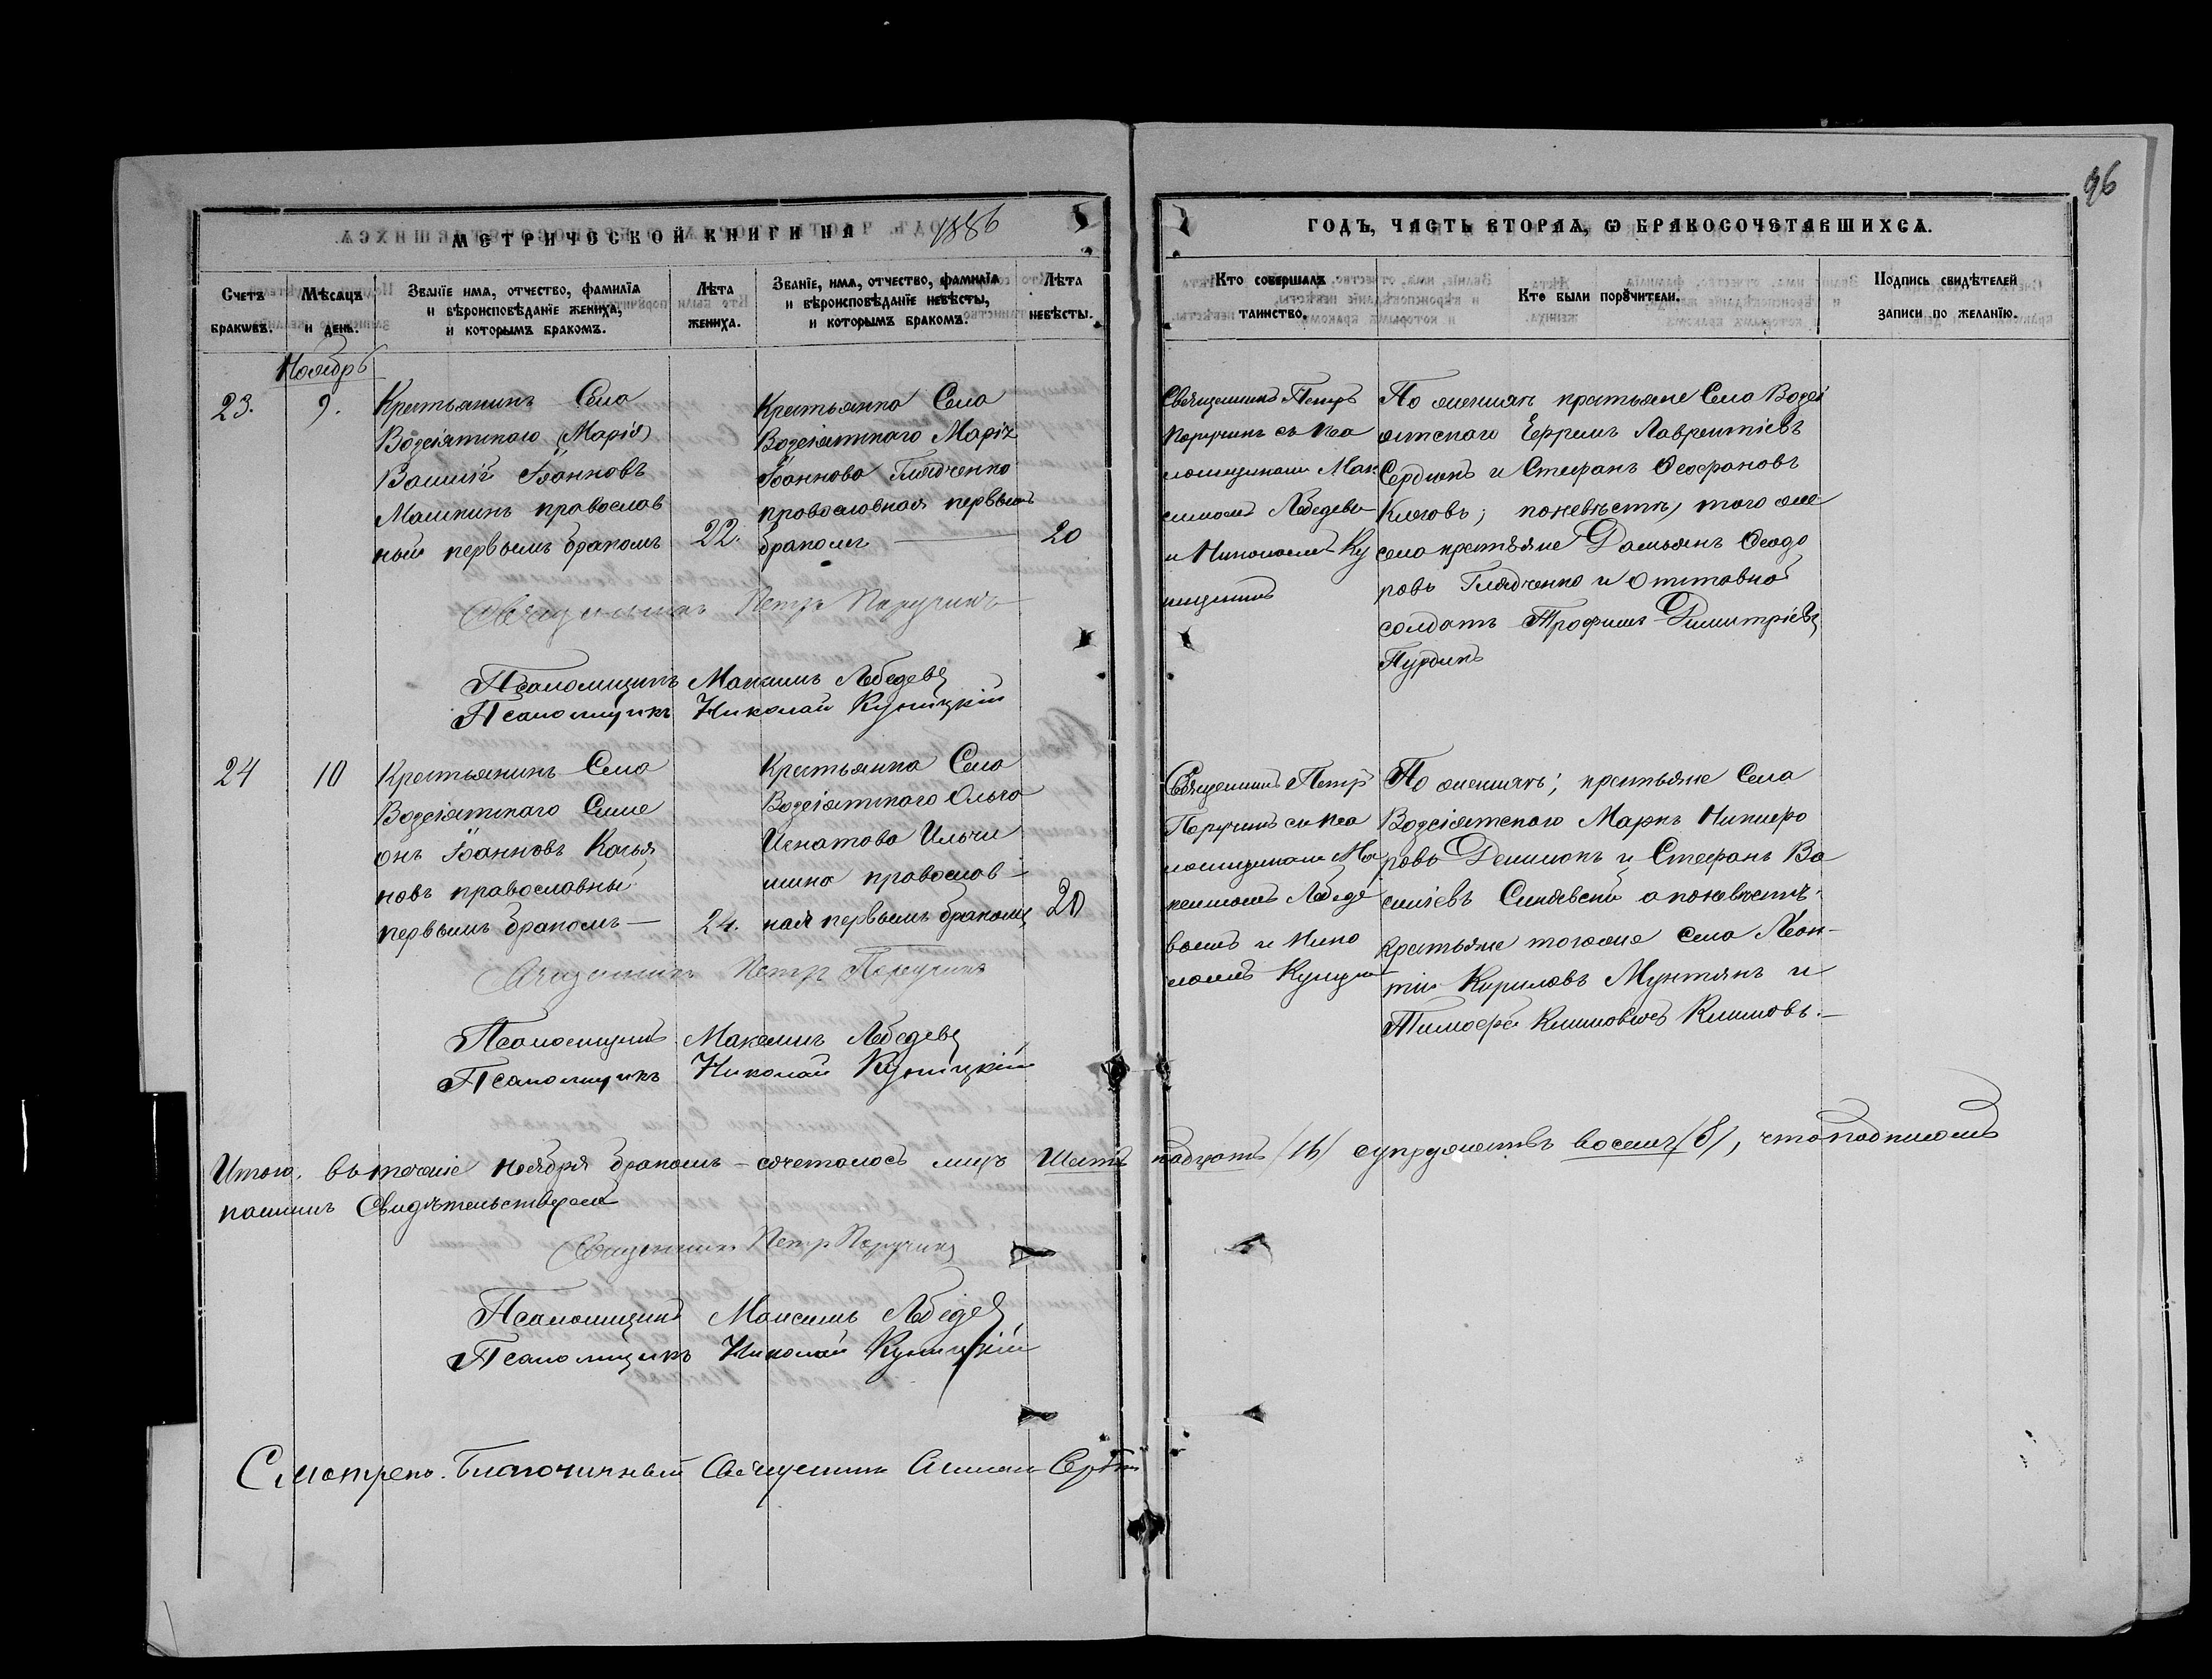 96
МЕТРИЧЕСКОЙ КНИГИ НА 1886
ГОДЪ, ЧАСТЬ ВТОРАѦ, Ѡ БРАКОСОЧЕТАВШИХСѦ.
Счетъ
браковъ.
Мѣсяцъ
и день.
Званіе имѧ, отчество, фамиліѧ
и вѣроисповѣданіе жениха,
и которымъ бракомъ.
Лѣта
жениха.
Званіе, имѧ, отчество, фамиліѧ
и вѣроисповѣданіе невѣсты,
и которымъ бракомъ.
Лѣта
невѣсты.
Кто совершалъ
таинство.
Кто были поручители.
Подпись свидѣтелей
записи по желанію.
Ноябрь
23.
9.
Крестьянинъ Села
Возсіятскаго (Марія)
Василій Іоанновъ
Машкинъ православ
ный первымъ бракомъ
22.
Крестьянка Села
Возсіятскаго Марія
Іоаннова Глядченко
православная первымъ
бракомъ
20
Священникъ Петръ
Поручинъ съ пса
ломщиками Мак
симомъ Лебедевы
и Николаемъ Ку
ницкимъ
По женихѣ крестьяне Села Возсі
ятскаго Ефремъ Лаврентіевъ
Сердюкъ и Стефанъ Ѳеофановъ
Клоговъ; по невѣстѣ, того же
села крестьяне Дамьянъ Ѳеодо
ровъ Глядченко и отставной
солдатъ Трофимъ Димитріевъ
Пурдикъ
Священникъ Петръ Поручинъ
Псаломщикъ Максимъ Лебедевъ
Псаломщикъ Николай Куницкій
24
10
Крестьянинъ Села
Возсіятскаго Симе
онъ Іоанновъ Касья
новъ православный
первымъ бракомъ
24.
Крестьянка Села
Возсіятскаго Ольга
Игнатова Ильчи
шина православ-
ная первымъ бракомъ
20
Священникъ Петръ
Поручинъ съ пса
ломщиками Ма
ксимомъ Лебеде
вымъ и Нико
лаемъ Куницки
По женихѣ; крестьяне Села
Возсіятскаго Маркъ Никифо
ровъ Демшокъ и Стефанъ Ва
силіевъ Синявскій а по невѣстѣ
крестьяне того же села Леон-
тій Кириловъ Мунтянъ и
Тимофей Климовъ.
Священникъ Петръ Поручинъ
Псаломщикъ Максимъ Лебедевъ
Псаломщикъ Николай Куницкій
Итого. въ теченіе ноября бракомъ сочеталось лицъ Шест надцать (16) супружествъ восемь (8), что подписомъ
нашимъ Свидѣтельствуемъ
Священникъ Петръ Поручинъ
Псаломщикъ Максимъ Лебедев
Псаломщикъ Николай Куницкій
Смотрено. Благочинный Священникъ